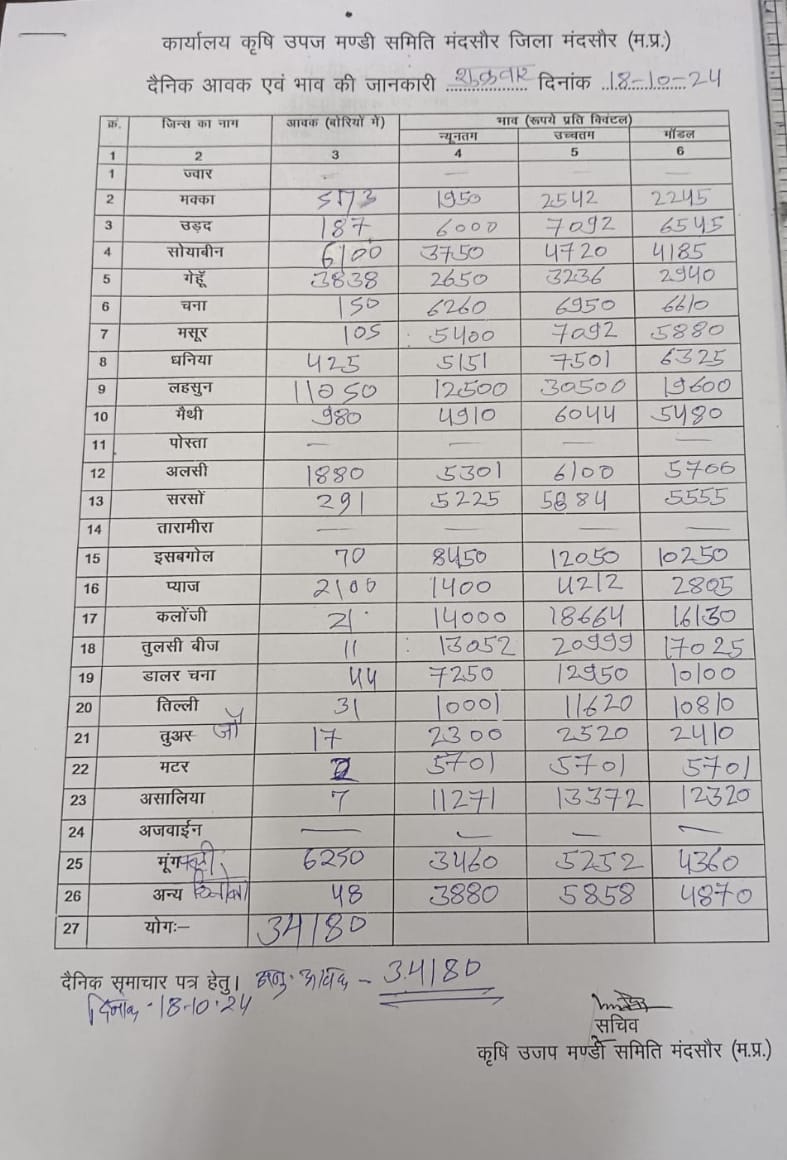 कार्यालय कृषि उपज मण्डी समिति मंदसौर जिला मंदसौर (म.प्र.)
दैनिक आवक एवं भाव की जानकारी शुक्रवार दिनांक 18-10-24
क्र. जिन्स का नाम आवक (बोरियों में) भाव (रूपये प्रति क्विंटल)
न्यूनतम उच्चतम मॉडल
1 2 3 4 5 6
1 ज्वार — — — —
2 मक्का 5173 1950 2542 2245
3 उड़द 187 6000 7092 6545
4 सोयाबीन 6100 3750 4720 4185
5 गेहूँ 3838 2650 3236 2940
6 चना 150 6260 6950 6610
7 मसूर 105 5400 7092 5880
8 धनिया 425 5151 7501 6325
9 लहसुन 11050 12500 30500 19600
10 मैथी 980 4910 6044 5480
11 पोस्ता — — — —
12 अलसी 1880 5301 6100 5700
13 सरसों 291 5225 5884 5555
14 तारामीरा — — — —
15 इसबगोल 70 8450 12050 10250
16 प्याज 2100 1400 4212 2805
17 कलोंजी 21 14000 18664 16130
18 तुलसी बीज 11 13052 20999 17025
19 डालर चना 44 7250 12950 10100
20 तिल्ली 31 10001 11620 10810
21 तुअर जौ 17 2300 2520 2410
22 मटर 2 5701 5701 5701
23 असालिया 7 11271 13372 12320
24 अजवाईन — — — —
25 मूंगफली 6250 3460 5252 4360
26 अन्य 48 3880 5858 4870
27 योगः– 34180
दैनिक समाचार पत्र हेतु। आवक – 34180
दिनांक 18-10-24
सचिव
कृषि उजप मण्डी समिति मंदसौर (म.प्र.)